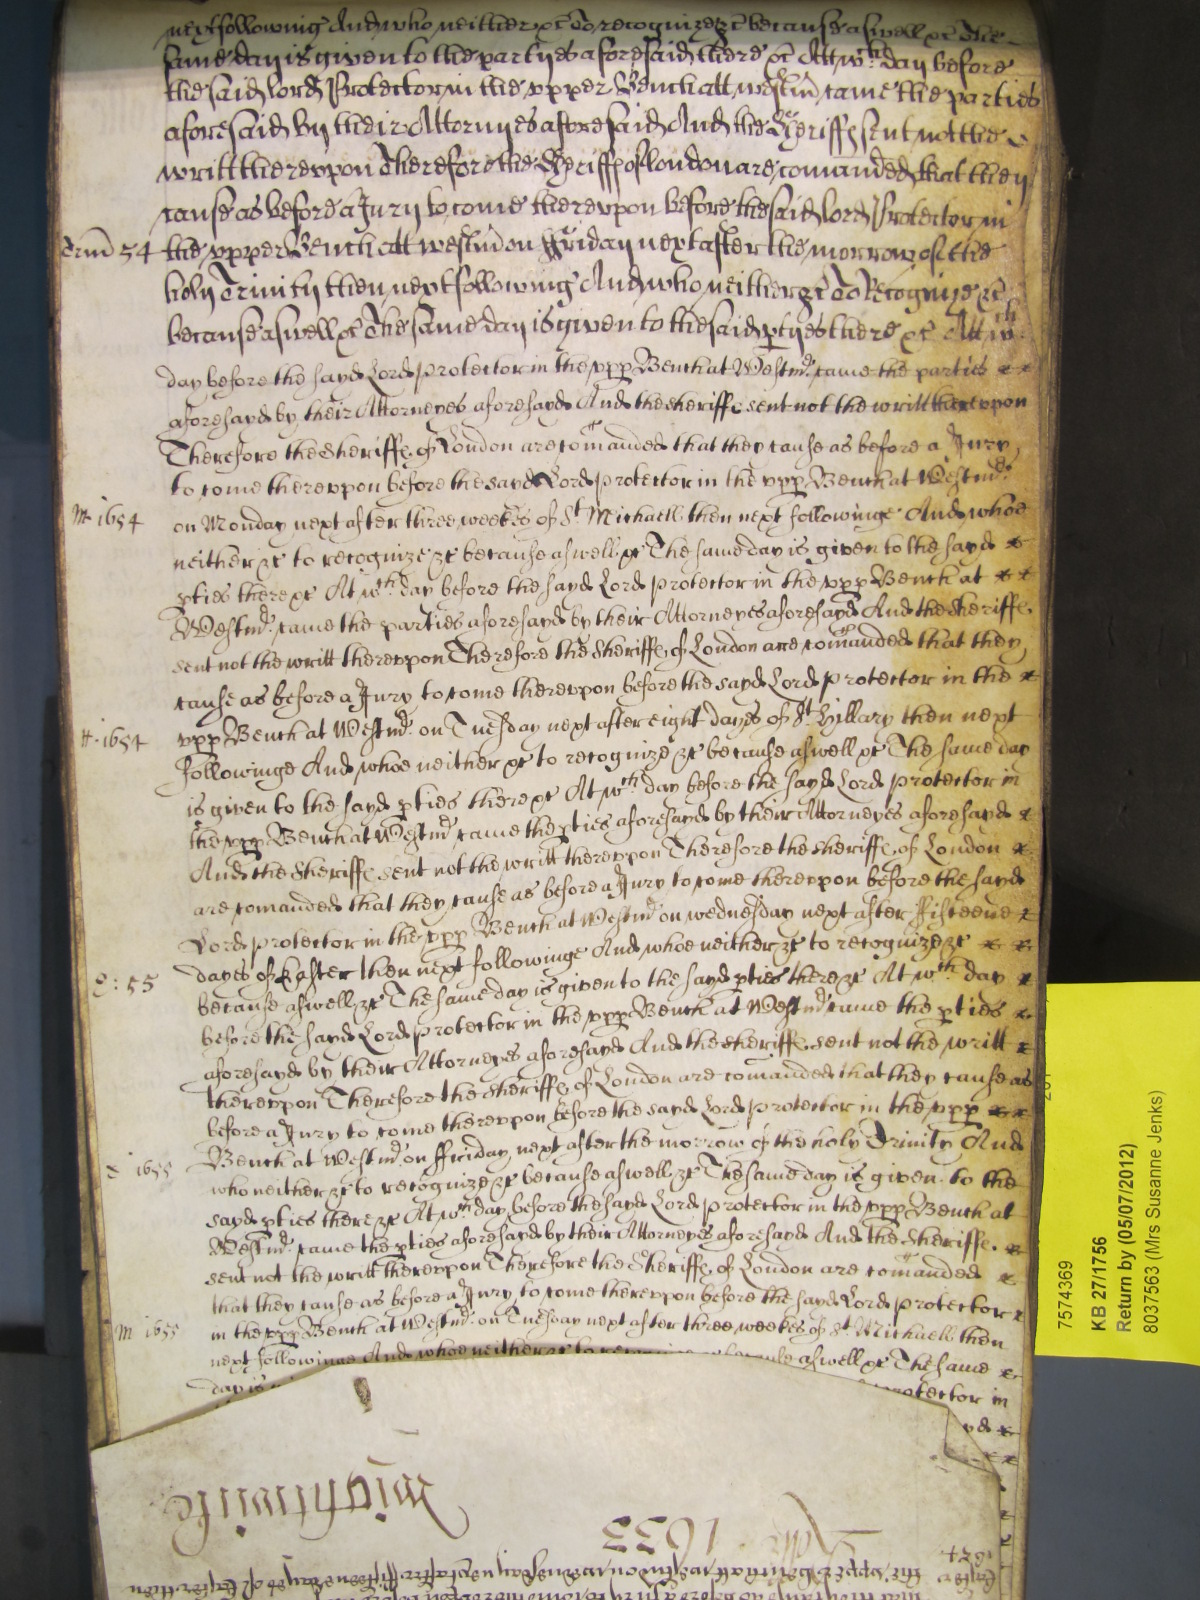 next following And who neither &c to recognize &c because aswell &c The
same day is given to the partyes aforesaid there &c Att wch day before
the said lord Protector in the upper Bench att westm came the parties
aforesaid by their Attornyes aforesaid And the Sheriffe sent not the
writt thereupon Therefore the Sheriffe of london are comanded that they
cause as before a Jury to come thereupon before the said lord Protector in
Trin 54 the upper Bench att westm on ffriday next after the morrow of the
holy Trinity then next following And who neither &c to Recognize &c
because aswell &c The same day is given to the said ptyes there &c Att wch
day before the sayd Lord protector in the upp Bench at Westmr came the parties
aforesayd by their Attorneyes aforesayd And the sheriffe sent not the writt thereupon
Therefore the Sheriffe of London are comanded that they cause as before a Jury
to come thereupon before the sayd Lord protector in the upp Bench at Westmr
M 1654 on Monday next after three weekes of St Michaell then next followinge And whoe
neither &c to recognize &c because aswell &c The same day is given to the sayd
pties there &c At wch day before the sayd Lord protector in the upp Bench at
Westmr came the parties aforesayd by their Attorneyes aforesayd And the Sheriffe
sent not the writt thereupon Therefore the Sheriffe of London are comanded that they
cause as before a Jury to come thereupon before the sayd Lord protector in the
H 1654 upp Bench at Westmr on Tuesday next after eight dayes of St Hyllary then next
followinge And whoe neither &c to recognize &c because aswell &c The same day
is given to the sayd pties there &c At wch day before the sayd Lord protector in
the upp Bench at Westmr came the pties aforesayd by their Attorneyes aforesayd
And the Sheriffe sent not the writt thereupon Therefore the Sheriffe of London
are comanded that they cause as before a Jury to come thereupon before the sayd
Lord protector in the upp Bench at Westmr on wednesday next after fifteene
E: 55 dayes of Easter then next followinge And whoe neither &c to recognize &c
because aswell &c The same day is given to the sayd pties there &c At wch day
before the sayd Lord protector in the upp Bench at Westmr came the pties
aforesayd by their Attorneyes aforesayd And the sheriffe sent not the writt
thereupon Therefore the Sheriffe of London are comanded that they cause as
before a Jury to come thereupon before the sayd Lord protector in the upp
1655 Bench at Westmr on ffriday next after the morrow of the holy Trinity And
who neither &c to recognize &c because aswell &c The same day is given to the
sayd pties there &c At wch day before the sayd Lord protector in the upp Bench at
Westmr came the pties aforesayd by their Attorneyes aforesayd And the Sheriffe
sent not the writt thereupon Therefore the Sheriffe of London are comanded
that they cause as before a Jury to come thereupon before the sayd Lord protector
M 1655 in the upp Bench at Westmr on Tuesday next after three weekes of St Michaell then
next followinge And whoe neither &c to aswell &c The same
day is protector in
Wightwick
1653
7574369
KB 27/1756
Return by (05/07/2012)
8037563 (Mrs Susanne Jenks)